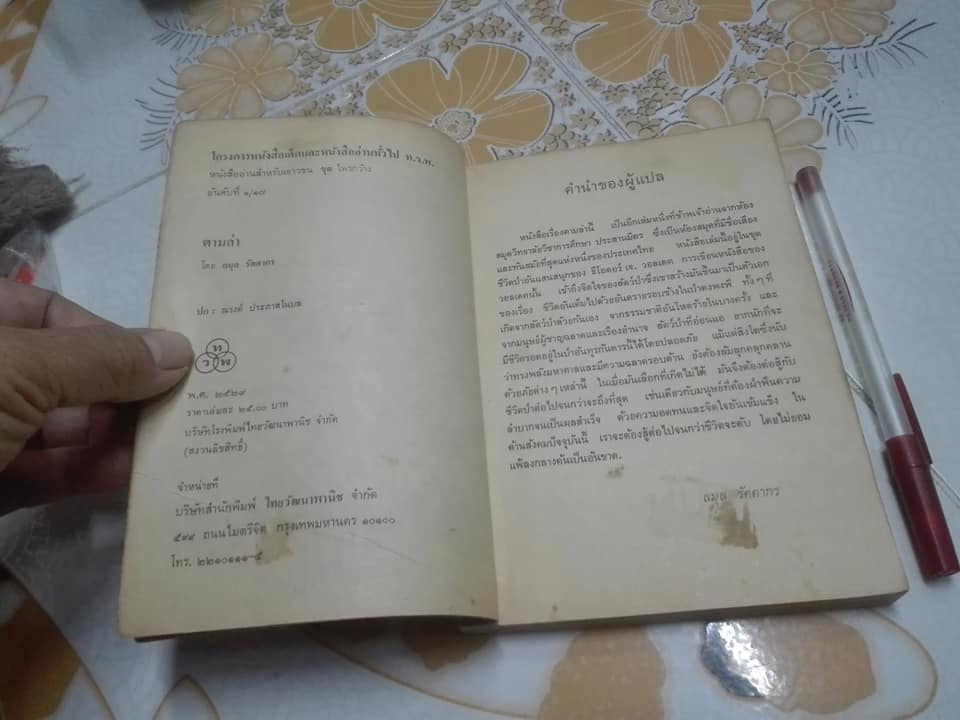 โครงการหนังสือเด็กและหนังสืออ่านทั่วไป ท.ว.พ.
หนังสืออ่านสำหรับเยาวชน ชุด ไพรกว้าง
อันดับที่ ๑/๑๗
ตามล่า
โดย ลมุล รัตตากร
ปก : ณรงค์ ประภาสโนบล
ท
ว พ
พ.ศ. ๒๕๒๙
ราคาเล่มละ ๒๕.๐๐ บาท
บริษัทโรงพิมพ์ไทยวัฒนาพานิช จำกัด
(สงวนลิขสิทธิ์)
จำหน่ายที่
บริษัทสำนักพิมพ์ ไทยวัฒนาพานิช จำกัด
๕๙๙ ถนนไมตรีจิต กรุงเทพมหานคร ๑๐๑๐๐
โทร. ๒๒๑๐๑๑๑-๕
คำนำของผู้แปล
หนังสือเรื่องตามล่านี้ เป็นอีกเล่มหนึ่งที่ข้าพเจ้าอ่านจากห้อง
สมุดวิทยาลัยวิชาการศึกษา ประสานมิตร ซึ่งเป็นห้องสมุดที่มีชื่อเสียง
และทันสมัยที่สุดแห่งหนึ่งของประเทศไทย หนังสือเล่มนี้อยู่ในชุด
ชีวิตป่าอันแสนสนุกของ ธีโอดอร์ เจ. วอลเดค การเขียนหนังสือของ
วอลเดคนั้น เข้าถึงจิตใจของสัตว์ป่าซึ่งเขาสร้างมันขึ้นมาเป็นตัวเอก
ของเรื่อง ชีวิตอันเต็มไปด้วยอันตรายรอบข้างในป่าดงพงพี ทั้ง ๆ ที่
เกิดจากสัตว์ป่าด้วยกันเอง จากธรรมชาติอันโหดร้ายในบางครั้ง และ
จากมนุษย์ผู้ชาญฉลาดและเรืองอำนาจ สัตว์ป่าที่อ่อนแอ ยากนักที่จะ
มีชีวิตรอดอยู่ในป่าอันทุรกันดารนี้ได้โดยปลอดภัย แม้แต่สิงโตซึ่งนับ
ว่าทรงพลังมหาศาลและมีความฉลาดรอบด้าน ยังต้องล้มลุกคลุกคลาน
ด้วยภัยต่าง ๆ เหล่านี้ ในเมื่อมันเลือกที่เกิดไม่ได้ มันจึงต้องต่อสู้กับ
ชีวิตป่าต่อไปจนกว่าจะถึงที่สุด เช่นเดียวกับมนุษย์ที่ต้องฝ่าฟันความ
ลำบากจนเป็นผลสำเร็จ ด้วยความอดทนและจิตใจอันเข้มแข็ง ใน
ด้านสังคมปัจจุบันนี้ เราจะต้องสู้ต่อไปจนกว่าชีวิตจะดับ โดยไม่ยอม
แพ้ลงกลางคันเป็นอันขาด.
ลมุล รัตตากร